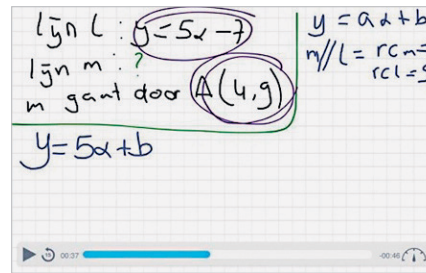 lijn l : y = 5x - 7
lijn m : ?
m gaat door A(4,9)
y = ax + b
m // l = rcm =
rcl = 5
y = 5x + b
00:37
-00:46